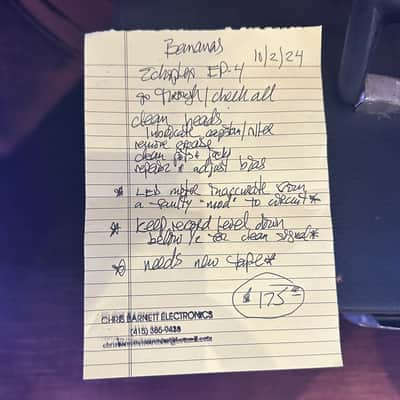 Bananas
10/2/24
Echoplex EP.4
go through/check all
clean heads
lubricate capstan/roller
remove grease
clean pots & jacks
repair & adjust bias
* LED meter inaccurate from
a faulty "mod" to circuit *
* keep record level down
below for clean signal *
* needs new tape *
$175
CHRIS BARNETT ELECTRONICS
(415) 385-9438